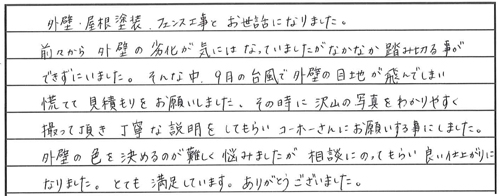 外壁・屋根塗装、フェンス工事と お世話になりました。
前々から 外壁の 劣化が 気には なっていましたがなかなか 踏み切る事が
できずにいました。そんな中、9月の台風で外壁の目地が飛んでしまい
慌てて 見積もりをお願いしました、その時に 沢山の写真をわかりやすく
撮って頂き 丁寧な説明をしてもらい コーホーさんにお願いする事にしました。
外壁の色を決めるのが難しく 悩みましたが 相談にのってもらい 良い仕上がりに
なりました。とても 満足しています。ありがとうございました。